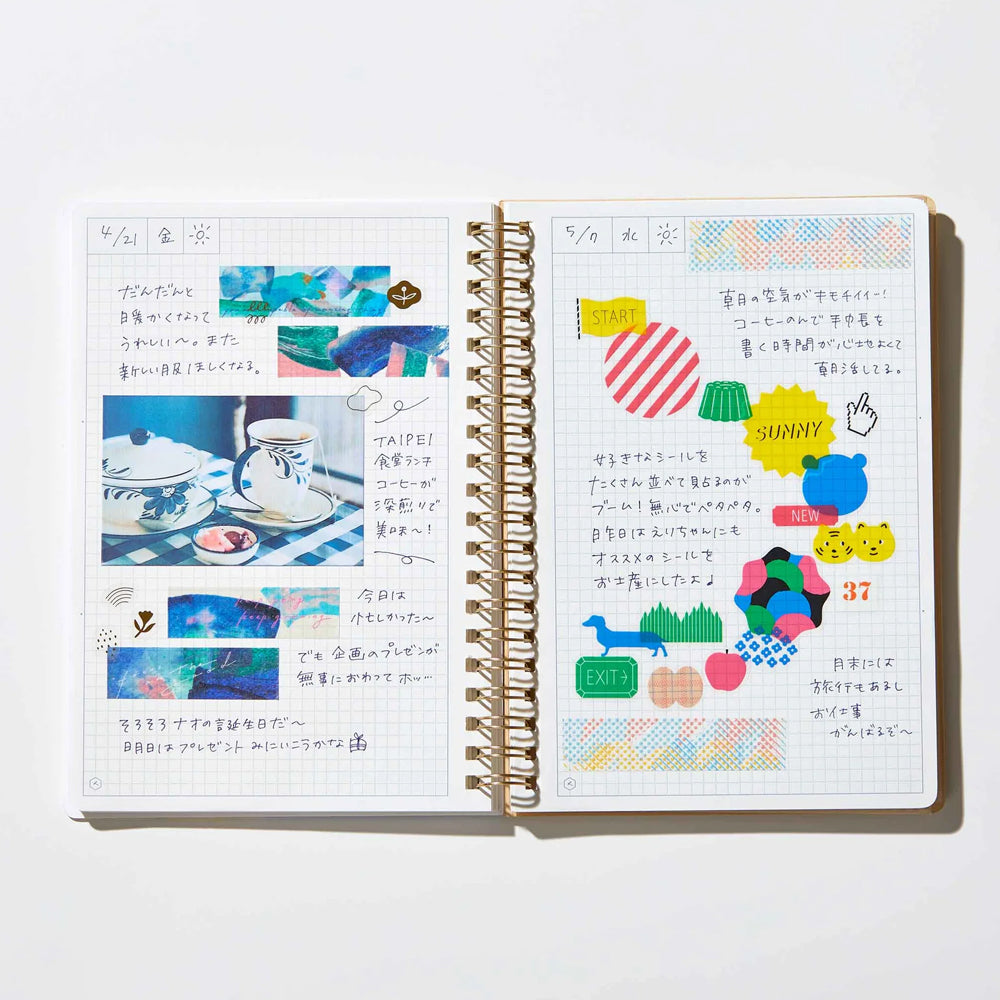 4/21 金
だんだんと
日暖かくなって
うれしい〜。また
新しい服ほしくなる。
TAIPEI
食堂ランチ
コーヒーが
深煎りで
美味〜!
今日は
忙しかった〜
でも企画のプレゼンが
無事におわってホッ…
そろそろナオの誕生日だ〜
明日はプレゼントみにいこうかな
5/7 水
朝の空気がキモチイイー!
コーヒーのんで手帳を
書く時間が心地よくて
朝活してる。
START
SUNNY
好きなシールを
たくさん並べて貼るのが
ブーム!無心でペタペタ。
昨日はえりちゃんにも
オススメのシールを
お土産にしたよ♪
NEW
37
EXIT→
月末には
旅行もあるし
お仕事
がんばるぞ〜